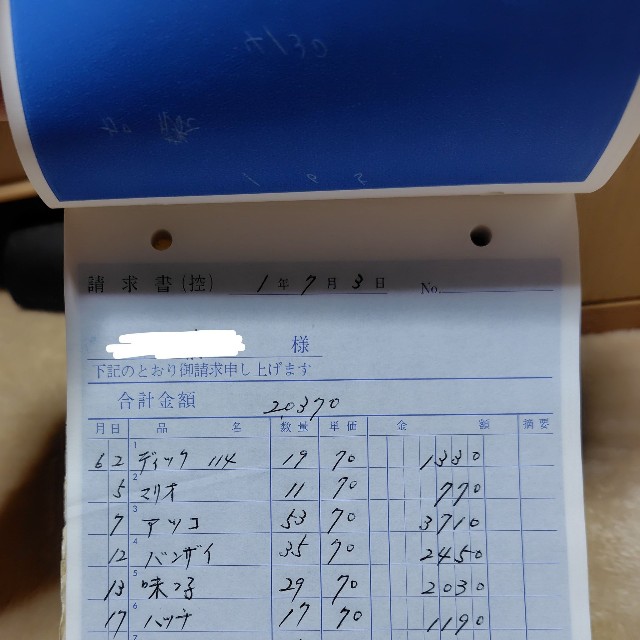 請求書(控) 1年7月3日 No.
様
下記のとおり御請求申し上げます
合計金額 20370
月日 品名 数量 単価 金額 摘要
6 2 1 ディック 114 19 70 1330
5 2 マリオ 11 70 770
7 3 アツコ 53 70 3710
12 4 バンザイ 35 70 2450
13 5 味つ子 29 70 2030
17 6 ハッチ 17 70 1190